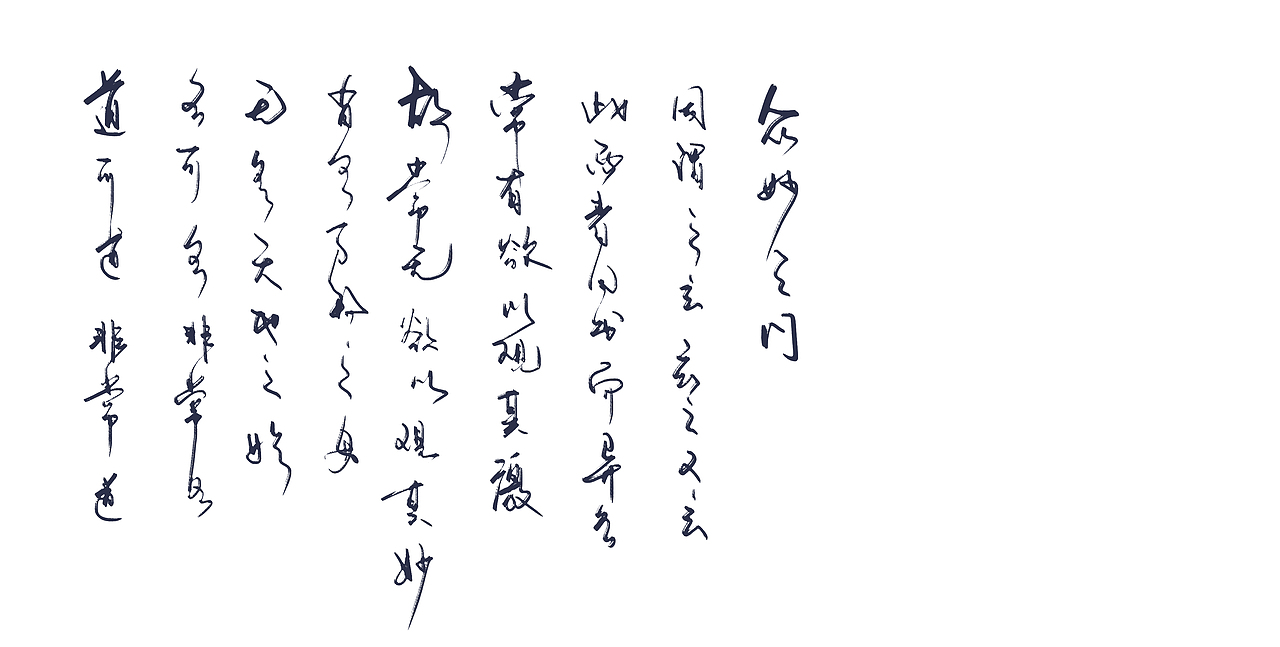 道可道非常道
名可名非常名
无名天地之始
有名万物之母
故常无欲以观其妙
常有欲以观其徼
此两者同出而异名
同谓之玄玄之又玄
众妙之门